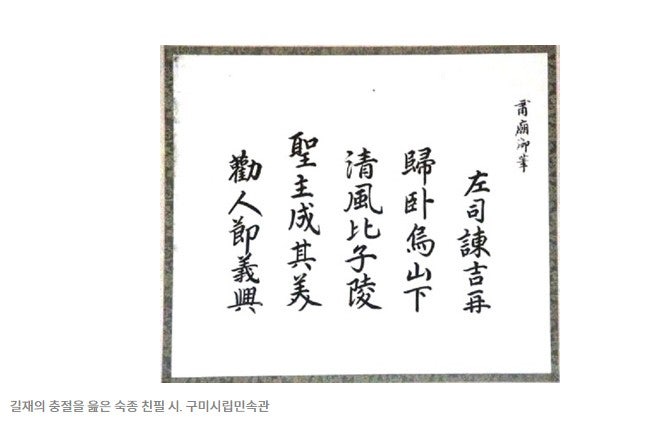 肅廟御筆
左司諫吉再
歸卧烏山下
清風比子陵
聖主成其美
勸人節義興
길재의 충절을 읊은 숙종 친필 시. 구미시립민속관